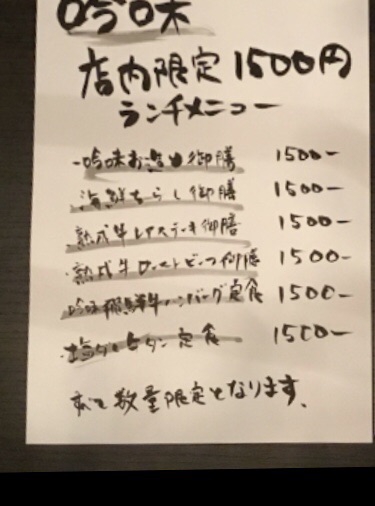 吟味
店内限定1500円
ランチメニュー
・吟味お造り御膳 1500-
・海鮮ちらし御膳 1500-
・熟成牛レアステーキ御膳 1500-
・熟成牛ローストビーフ御膳 1500-
・吟味飛騨牛ハンバーグ定食 1500-
・塩タン定食 1500-
数量限定となります、